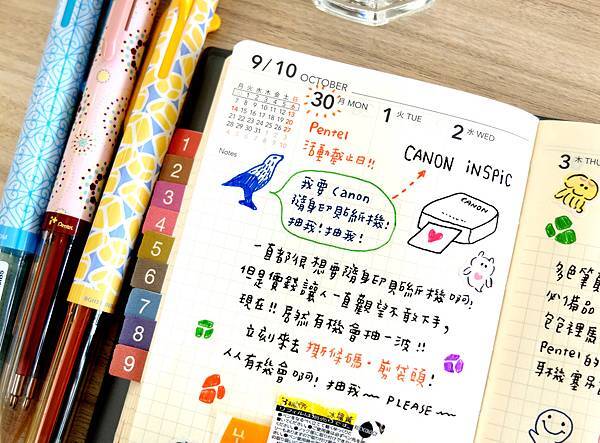 9/10 OCTOBER
月 火 水 木 金 土 日
30 月 MON
1 火 TUE
2 水 WED
3 木 THU
Notes
Pentel
活動截止日!!
CANON iNSPiC
我要Canon
隨身印貼紙機!
抽我!抽我!
CANON
一直都很想要隨身印貼紙機啊!
但是價錢讓人一直觀望不敢下手,
現在!!居然有機會抽一波!!
立刻來去撕條碼·剪袋頭!
人人有機會啊! 抽我~ PLEASE~
多色筆
必備品
包包裡
Pentel的
1
2
3
4
5
6
7
8
9
Pentel